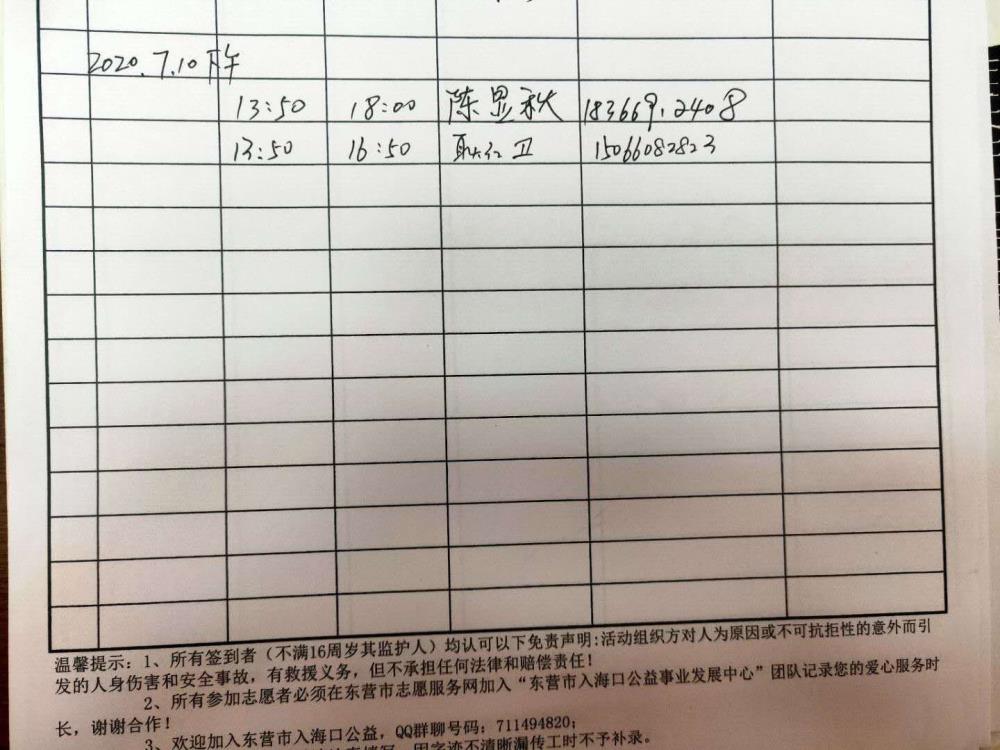 2020.7.10 下午
13:50 18:00 陈显秋 183669.2408
13:50 16:50 耿红卫 15066082823
温馨提示:1、所有签到者(不满16周岁其监护人)均认可以下免责声明:活动组织方对人为原因或不可抗拒性的意外而引
发的人身伤害和安全事故,有救援义务,但不承担任何法律和赔偿责任!
2、所有参加志愿者必须在东营市志愿服务网加入“东营市入海口公益事业发展中心”团队记录您的爱心服务时
长,谢谢合作!
3、欢迎加入东营市入海口公益,QQ群聊号码:711494820;
因字迹不清晰漏传工时不予补录。